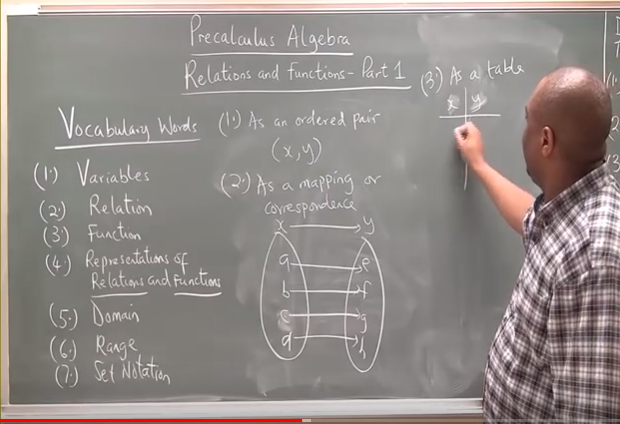 Precalculus Algebra
Relations and functions - Part 1
Vocabulary Words
(1.) Variables
(2.) Relation
(3.) Function
(4.) Representations of
Relations and Functions
(5.) Domain
(6.) Range
(7.) Set Notation
(1.) As an ordered pair
(x, y)
(2.) As a mapping or
correspondence
x → y
a → e
b → f
c → g
d → h
(3.) As a table
x y